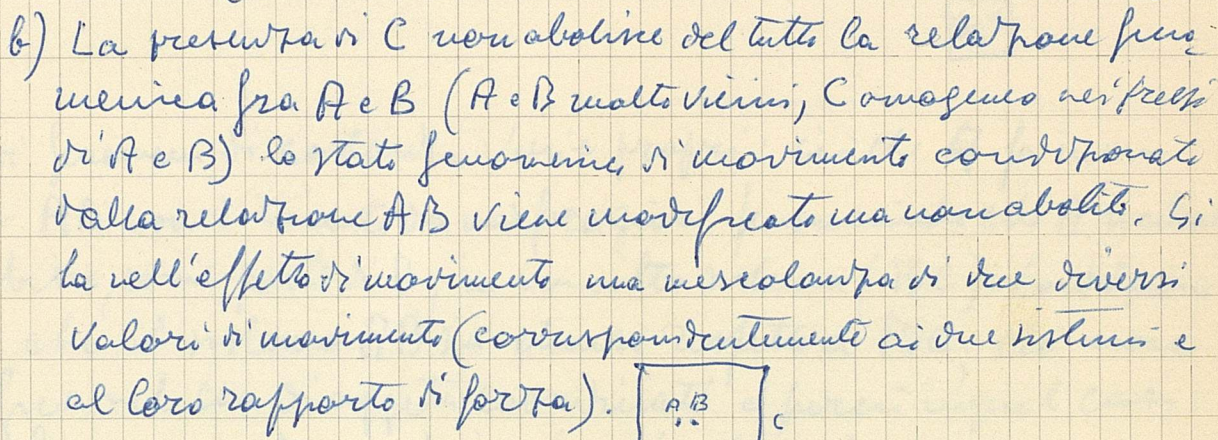 b) La presenza di C non abolisce del tutto la relazione feno-
menica fra A e B (A e B molto vicini, C omogeneo nei pressi
di A e B) lo stato fenomenico di movimento condizionato
dalla relazione AB viene modificato ma non abolito. Si
ha nell'effetto di movimento una mescolanza di due diversi
valori di movimento (corrispondentemente ai due sistemi e
al loro rapporto di forza). A B C